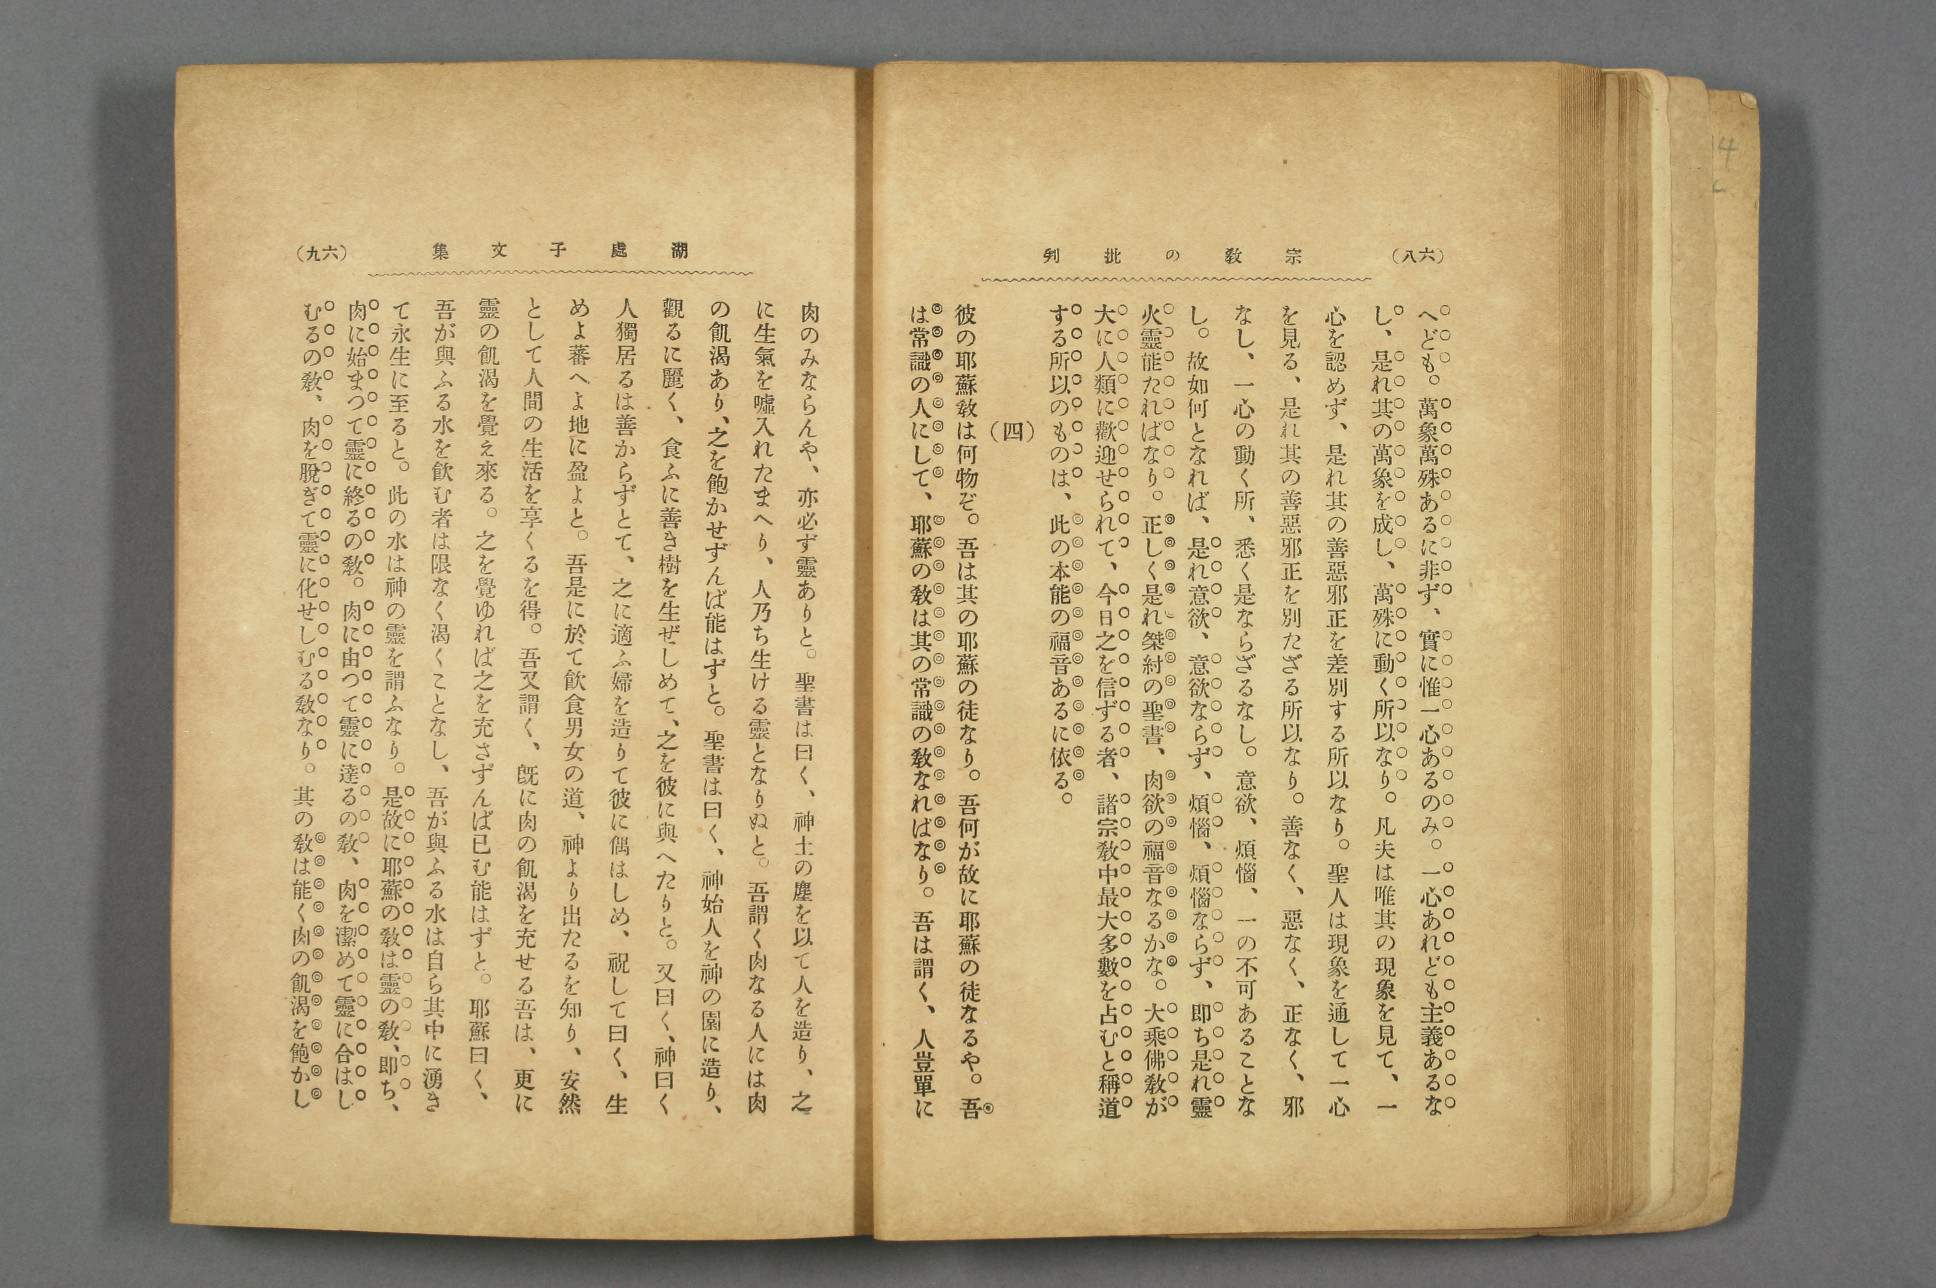 （六八）
宗教の批判
へども。萬象萬殊あるに非ず、實に惟一心あるのみ。一心あれども主義あるな
し、是れ其の萬象を成し、萬殊に動く所以なり。凡夫は唯其の現象を見て、一
心を認めず、是れ其の善惡邪正を差別する所以なり。聖人は現象を通して一心
を見る、是れ其の善惡邪正を別たざる所以なり。善なく、惡なく、正なく、邪
なし、一心の動く所、悉く是ならざるなし。意欲、煩惱、一の不可あることな
し。故如何となれば、是れ意欲、意欲ならず、煩惱、煩惱ならず、即ち是れ靈
火靈能たればなり。正しく是れ桀紂の聖書、肉欲の福音なるかな。大乘佛教が
大に人類に歡迎せられて、今日之を信ずる者、諸宗教中最大多數を占むと稱道
する所以のものは、此の本能の福音あるに依る。
（四）
彼の耶蘇教は何物ぞ。吾は其の耶蘇の徒なり。吾何が故に耶蘇の徒なるや。吾
は常識の人にして、耶蘇の教は其の常識の教なればなり。吾は謂く、人豈單に
湖處子文集
（六九）
肉のみならんや、亦必ず靈ありと。聖書は曰く、神土の塵を以て人を造り、之
に生氣を噓入れたまへり、人乃ち生ける靈となりぬと。吾謂く肉なる人には肉
の飢渴あり、之を飽かせずんば能はずと。聖書は曰く、神始人を神の園に造り、
觀るに麗く、食ふに善き樹を生ぜしめて、之を彼に與へたりと。又曰く、神曰く
人獨居るは善からずとて、之に適ふ婦を造りて彼に偶はしめ、祝して曰く、生
めよ蕃へよ地に盈よと。吾是に於て飲食男女の道、神より出たるを知り、安然
として人間の生活を享くるを得。吾又謂く、既に肉の飢渴を充せる吾は、更に
靈の飢渴を覺え來る。之を覺ゆれば之を充さずんば已む能はずと。耶蘇曰く、
吾が與ふる水を飲む者は限なく渴くことなし、吾が與ふる水は自ら其中に湧き
て永生に至ると。此の水は神の靈を謂ふなり。是故に耶蘇の教は靈の教、即ち、
肉に始まつて靈に終るの教。肉に由つて靈に達るの教、肉を潔めて靈に合はし
むるの教、肉を脫ぎて靈に化せしむる教なり。其の教は能く肉の飢渴を飽かし